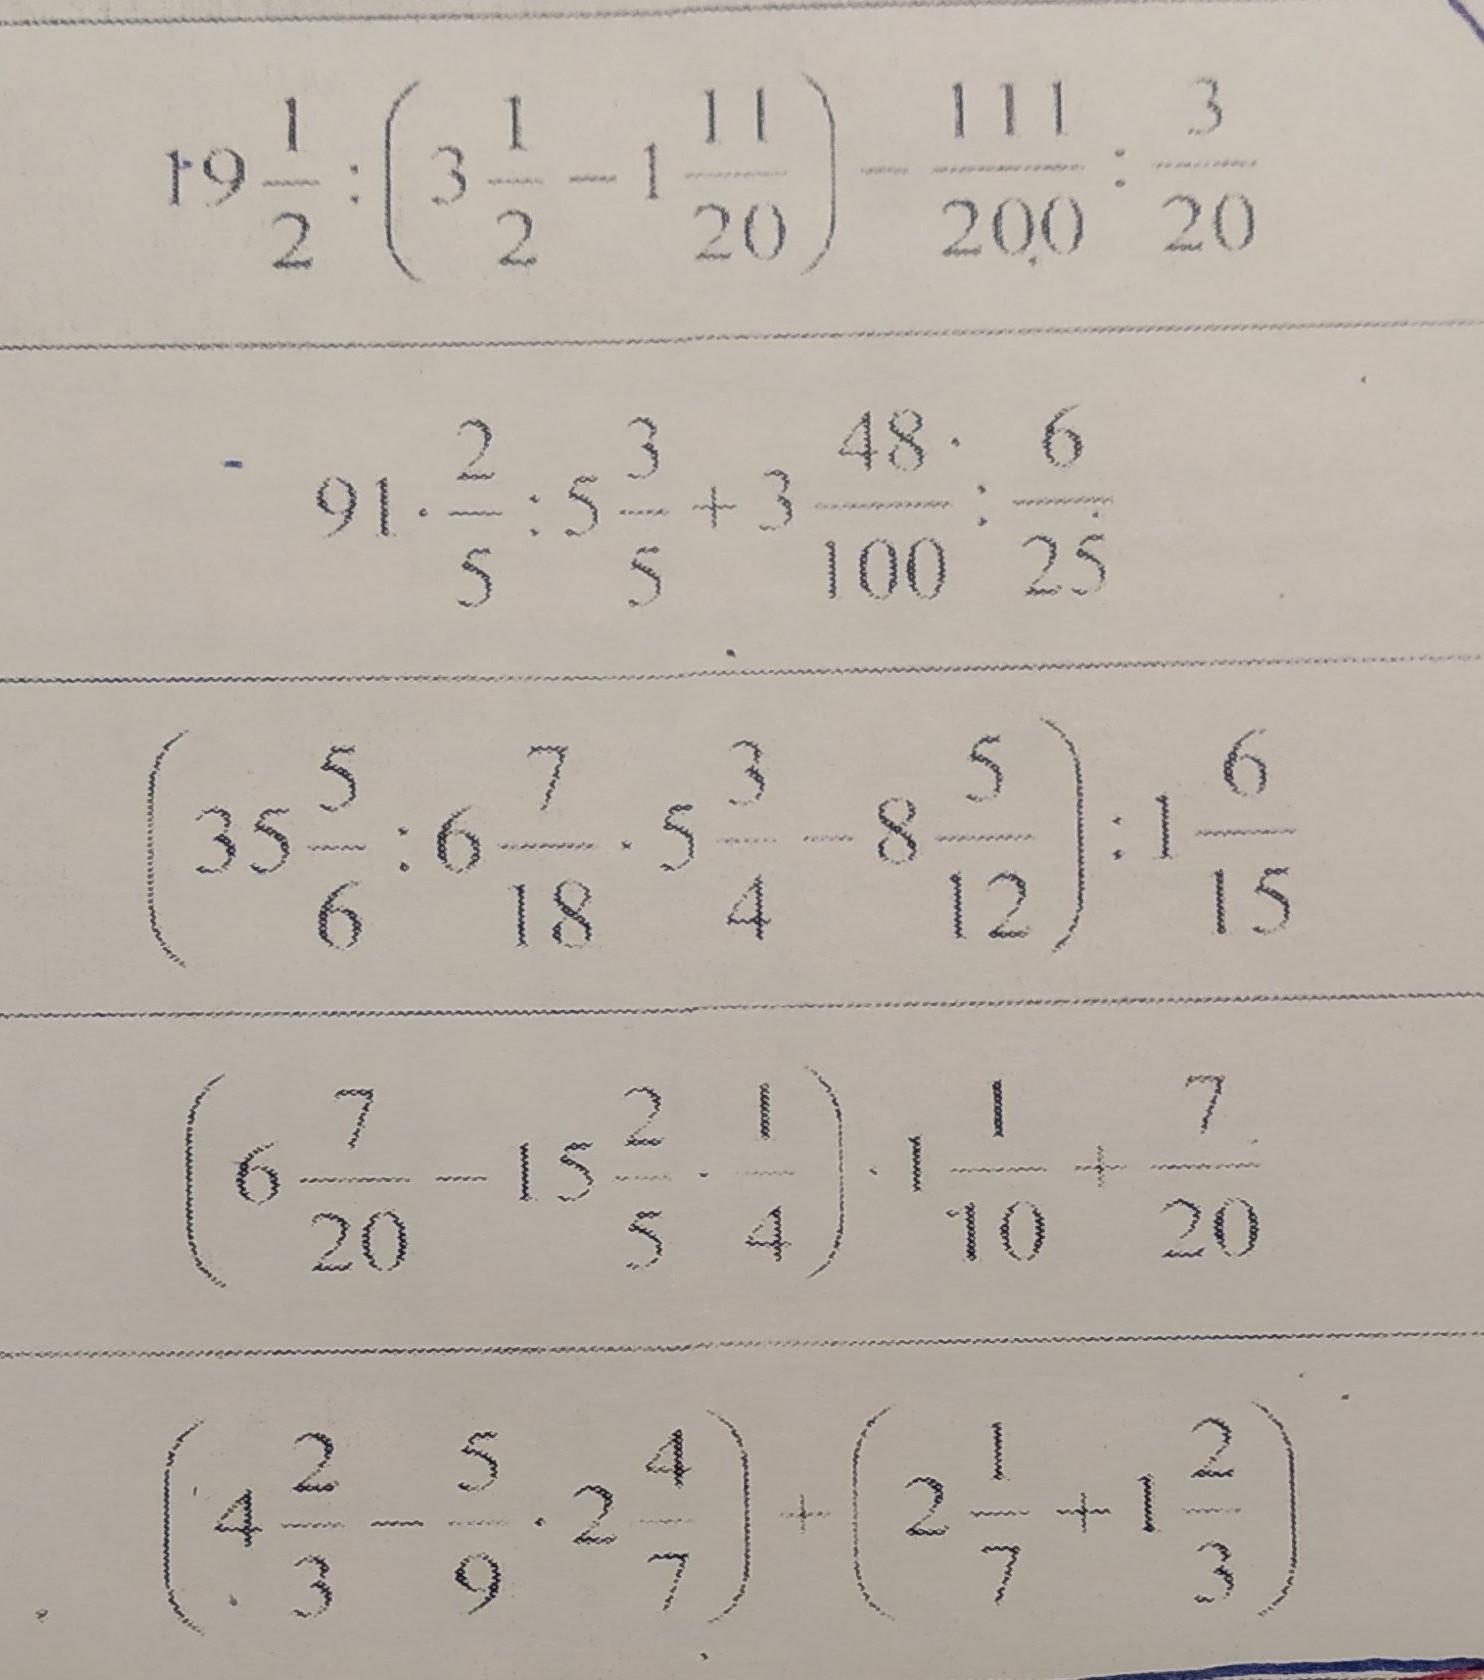 19 1/2 : (3 1/2 − 1 11/20) − 111/200 : 3/20
91 · 2/5 : 5 3/5 + 3 48/100 : 6/25
(35 5/6 : 6 7/18 · 5 3/4 − 8 5/12) : 1 6/15
(6 7/20 − 15 2/5 · 1/4) · 1 1/10 + 7/20
(4 2/3 − 5/9 · 2 4/7) + (2 1/7 + 1 2/3)